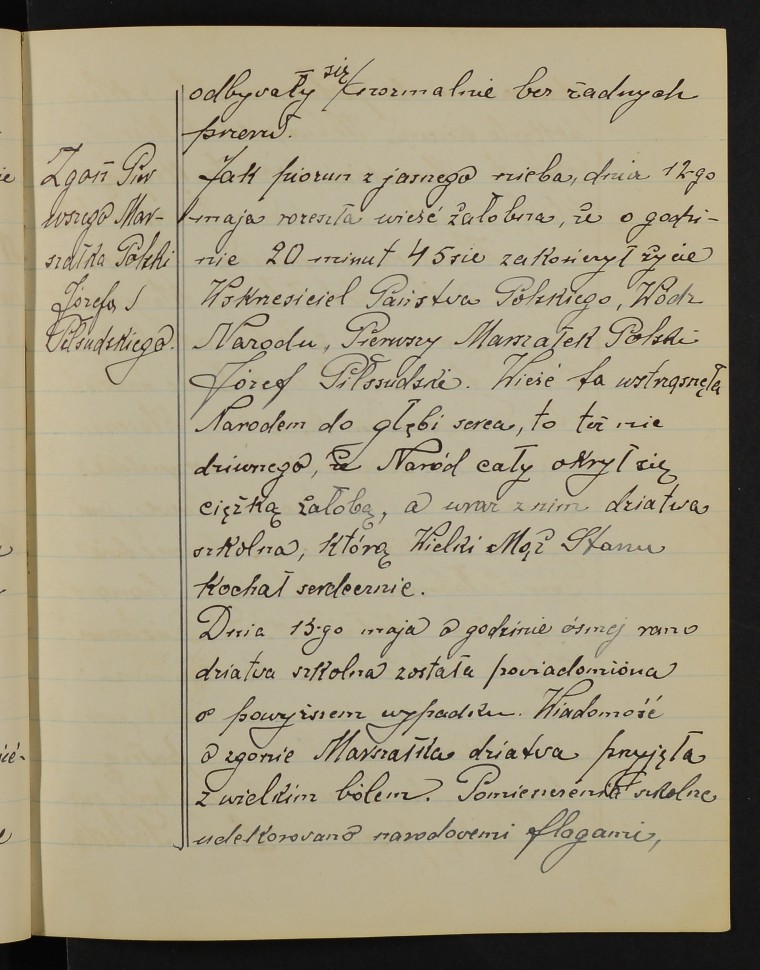 odbywały się normalnie bez żadnych
przerw.
Zgon Pier
wszego Mar-
szałka Polski
Józefa
Piłsudskiego.
Jak piorun z jasnego nieba, dnia 12-go
maja rozeszła wieść żałobna, że o godzi-
nie 20 minut 45 sie zakończył życie
Wskrzesiciel Państwa Polskiego, Wódz
Narodu, Pierwszy Marszałek Polski
Józef Piłssudski. Wieść ta wstrząsnęła
Narodem do głębi serca, to też nie
dziwnego, że Naród cały okrył się
ciężką żałobą, a wraz z nim dziatwa
szkolna, którą Wielki Mąż Stanu
kochał serdecznie.
Dnia 13-go maja o godzinie ósmej rano
dziatwa szkolna została powiadomiona
o powyższem wypadku. Wiadomość
o zgonie Marszałka dziatwa przyjęła
z wielkim bólem. Pomieszczenia szkolne
udekorowano narodowemi flagami,